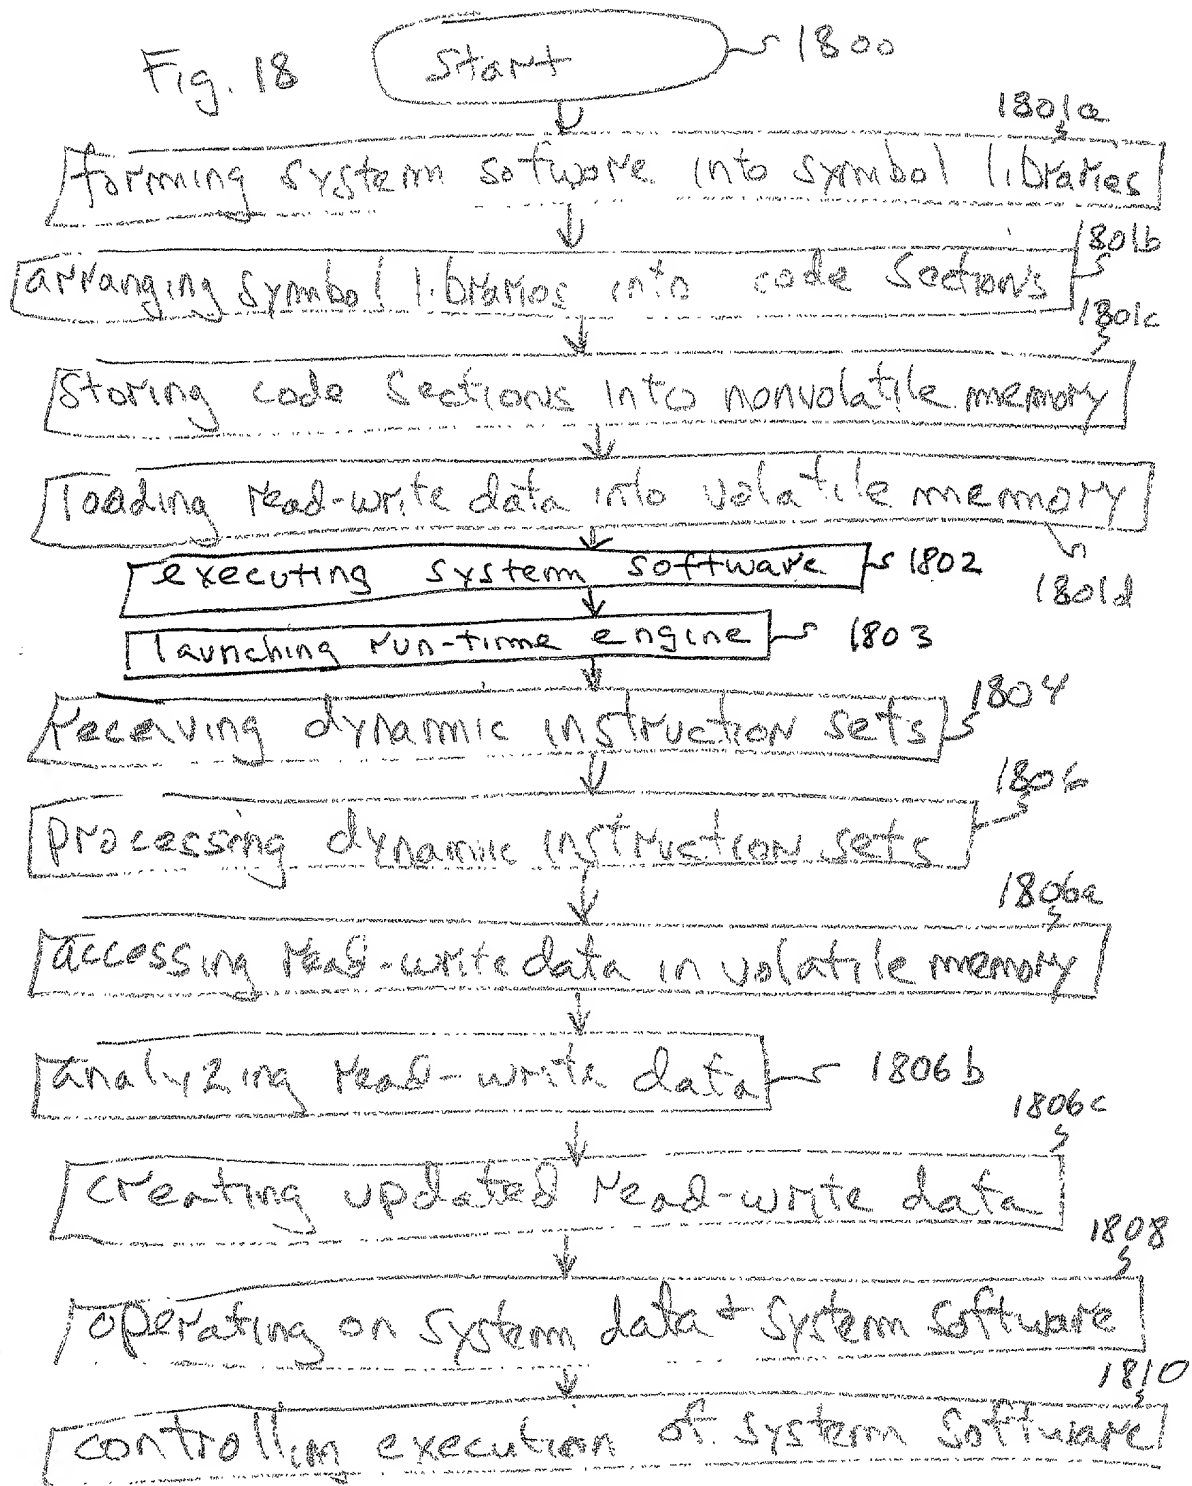 Fig. 18
Start
1800
1801a
forming system software into symbol libraries
1801b
arranging symbol libraries into code sections
1801c
storing code sections into nonvolatile memory
loading read-write data into volatile memory
1801d
executing system software
1802
launching run-time engine
1803
1804
receiving dynamic instruction sets
1806
processing dynamic instruction sets
1806a
accessing read-write data in volatile memory
analyzing read-write data
1806b
1806c
creating updated read-write data
1808
operating on system data + system software
1810
controllim execution of system software